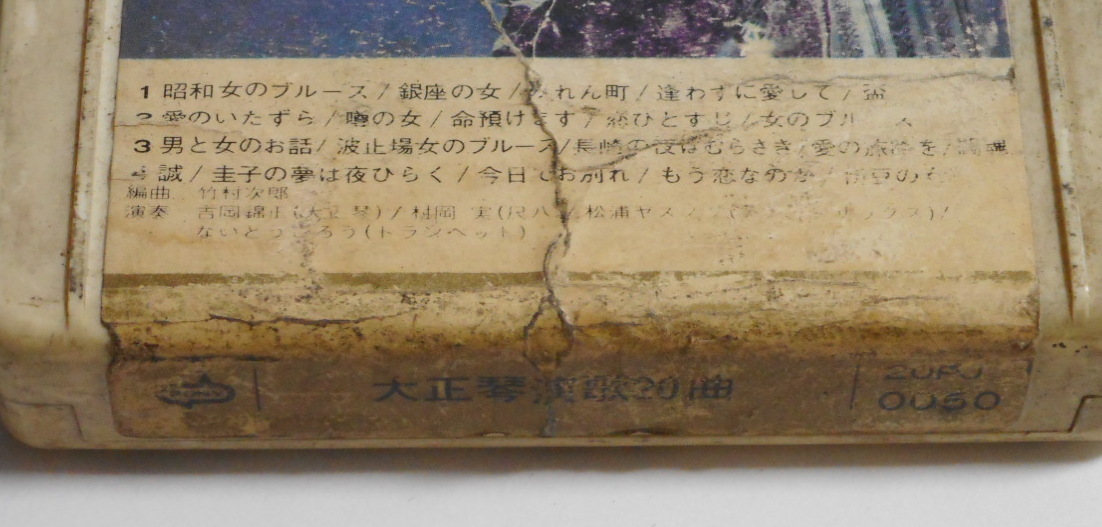 1 昭和女のブルース / 銀座の女 / みれん町 / 逢わずに愛して / 盃
2 愛のいたずら / 噂の女 / 命預けます / 恋ひとすじ / 女のブルース
3 男と女のお話 / 波止場女のブルース / 長崎の夜はむらさき / 愛の旅路を / 闘魂
4 誠 / 圭子の夢は夜ひらく / 今日でお別れ / もう恋なのか /
編曲 竹村次郎
演奏 吉岡錦正(大正琴) / 村岡 実(尺八) / 松浦ヤス
ないとう ろう(トランペット)
大正琴演歌20曲